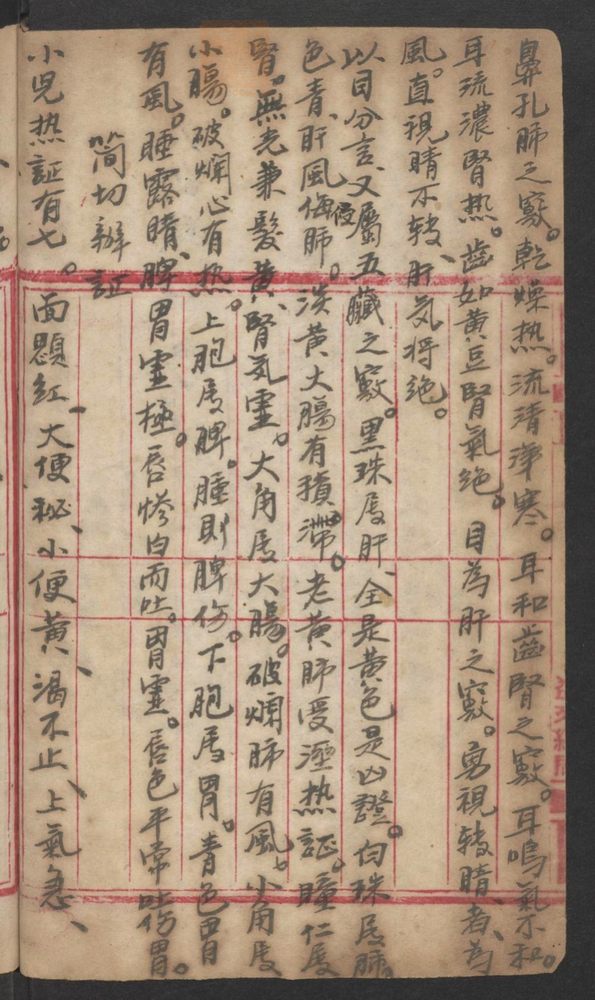 鼻孔肺之竅。乾燥热。流清涕寒。耳和齒腎之竅。耳鳴氣不和。
耳流濃腎热。齒如黄豆腎氣绝。目為肝之竅。勇視轉睛、者為
風。直視睛不转、肝気将绝。
以目分言、又屬五臟之竅。黑珠属肝、全是黄色是凶證。白珠属肺。
色青、肝風侮肺。淡黄大腸有積滞。老黄肺受湿热証。瞳仁属
侵
腎。無光兼髮黄、腎気虚。大角属大腸。破爛肺有風。小角属
小腸。破爛心有热。上胞属脾。腫則脾伤。下胞属胃。青色胃
有風。睡露睛、脾胃虚極。唇惨白而吐。胃虚。唇色平常吐伤胃。
简切辦証
小児热証有七。面顋紅、大便秘、小便黄、渴不止、上氣急、